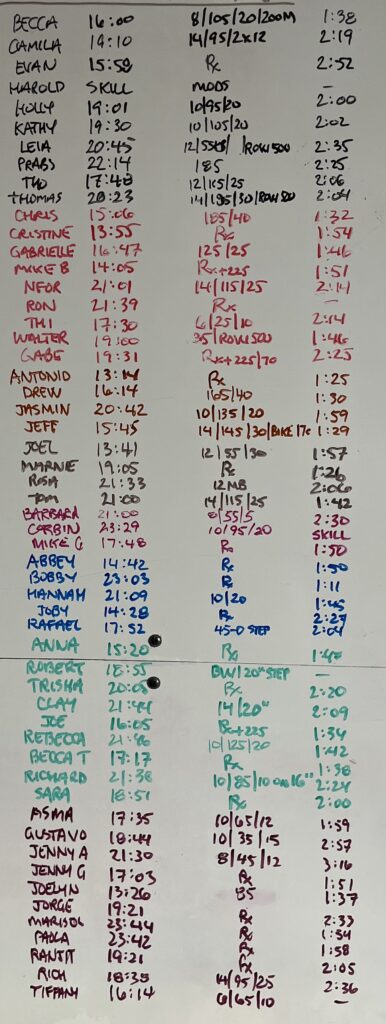 BECCA 16:00 8/105/20/200M 1:38
CAMILA 19:10 14/95/2x12 2:19
EVAN 15:58 Rx 2:52
HAROLD SKILL MODS -
HOLLY 19:01 10/95/20 2:00
KATHY 19:30 10/105/20 2:02
LEIA 20:45 12/55#/ /ROW 500 2:35
PRABS 22:14 185 2:25
THO 17:48 12/115/25 2:06
THOMAS 20:23 14/185/30/ROW 500 2:04
CHRIS 15:06 185/40 1:32
CRISTINE 13:55 Rx 1:54
GABRIELLE 16:47 125/25 1:46
MIKE B 14:05 Rx+225 1:51
NFOR 21:01 14/115/25 2:14
RON 21:39 Rx -
THI 17:30 6/25/10 2:14
WALTER 19:00 35/ROW 500 1:46
GABE 19:31 Rx+225/70 2:25
ANTONIO 13:14 Rx 1:25
DREW 16:14 165/40 1:30
JASMIN 20:42 10/135/20 1:59
JEFF 15:45 14/145/30/BIKE 1:29
JOEL 13:41 12/55/30 1:57
MARNIE 19:05 Rx 1:26
ROSA 21:33 12MB 2:06
TOM 21:00 14/115/25 1:42
BARBARA 21:00 8/55/5 2:30
CORBIN 23:29 10/95/20 SKILL
MIKE G 17:48 Rx 1:50
ABBEY 14:42 Rx 1:50
BOBBY 23:03 Rx 1:11
HANNAH 21:09 10/20 1:45
JOBY 14:28 Rx 2:27
RAFAEL 17:52 45-0 STEP 2:04
ANNA 15:20 Rx
ROBERT 18:55 BW/20" STEP -
TRISHA 20:05 Rx 2:20
CLAY 21:44 14/20" 2:09
JOE 16:05 Rx+225 1:34
REBECCA 10/125/20 1:42
BECCA T 17:17 Rx 1:38
RICHARD 21:38 10/85/10 16" 2:24
SARA 18:51 Rx 2:00
ASMA 17:35 10/65/12 1:59
GUSTAVO 18:44 10/35/15 2:57
JENNY A 21:30 8/45/12 3:16
JENNY G 17:03 Rx 1:51
JOELYN 13:26 85 1:37
JORGE 19:21 Rx 2:33
MARISOL 23:44 Rx 1:54
PAOLA 23:42 Rx 1:58
RANJIT 19:21 Rx 2:05
RICH 18:35 14/95/25 2:36
TIFFANY 16:14 6/65/10 -